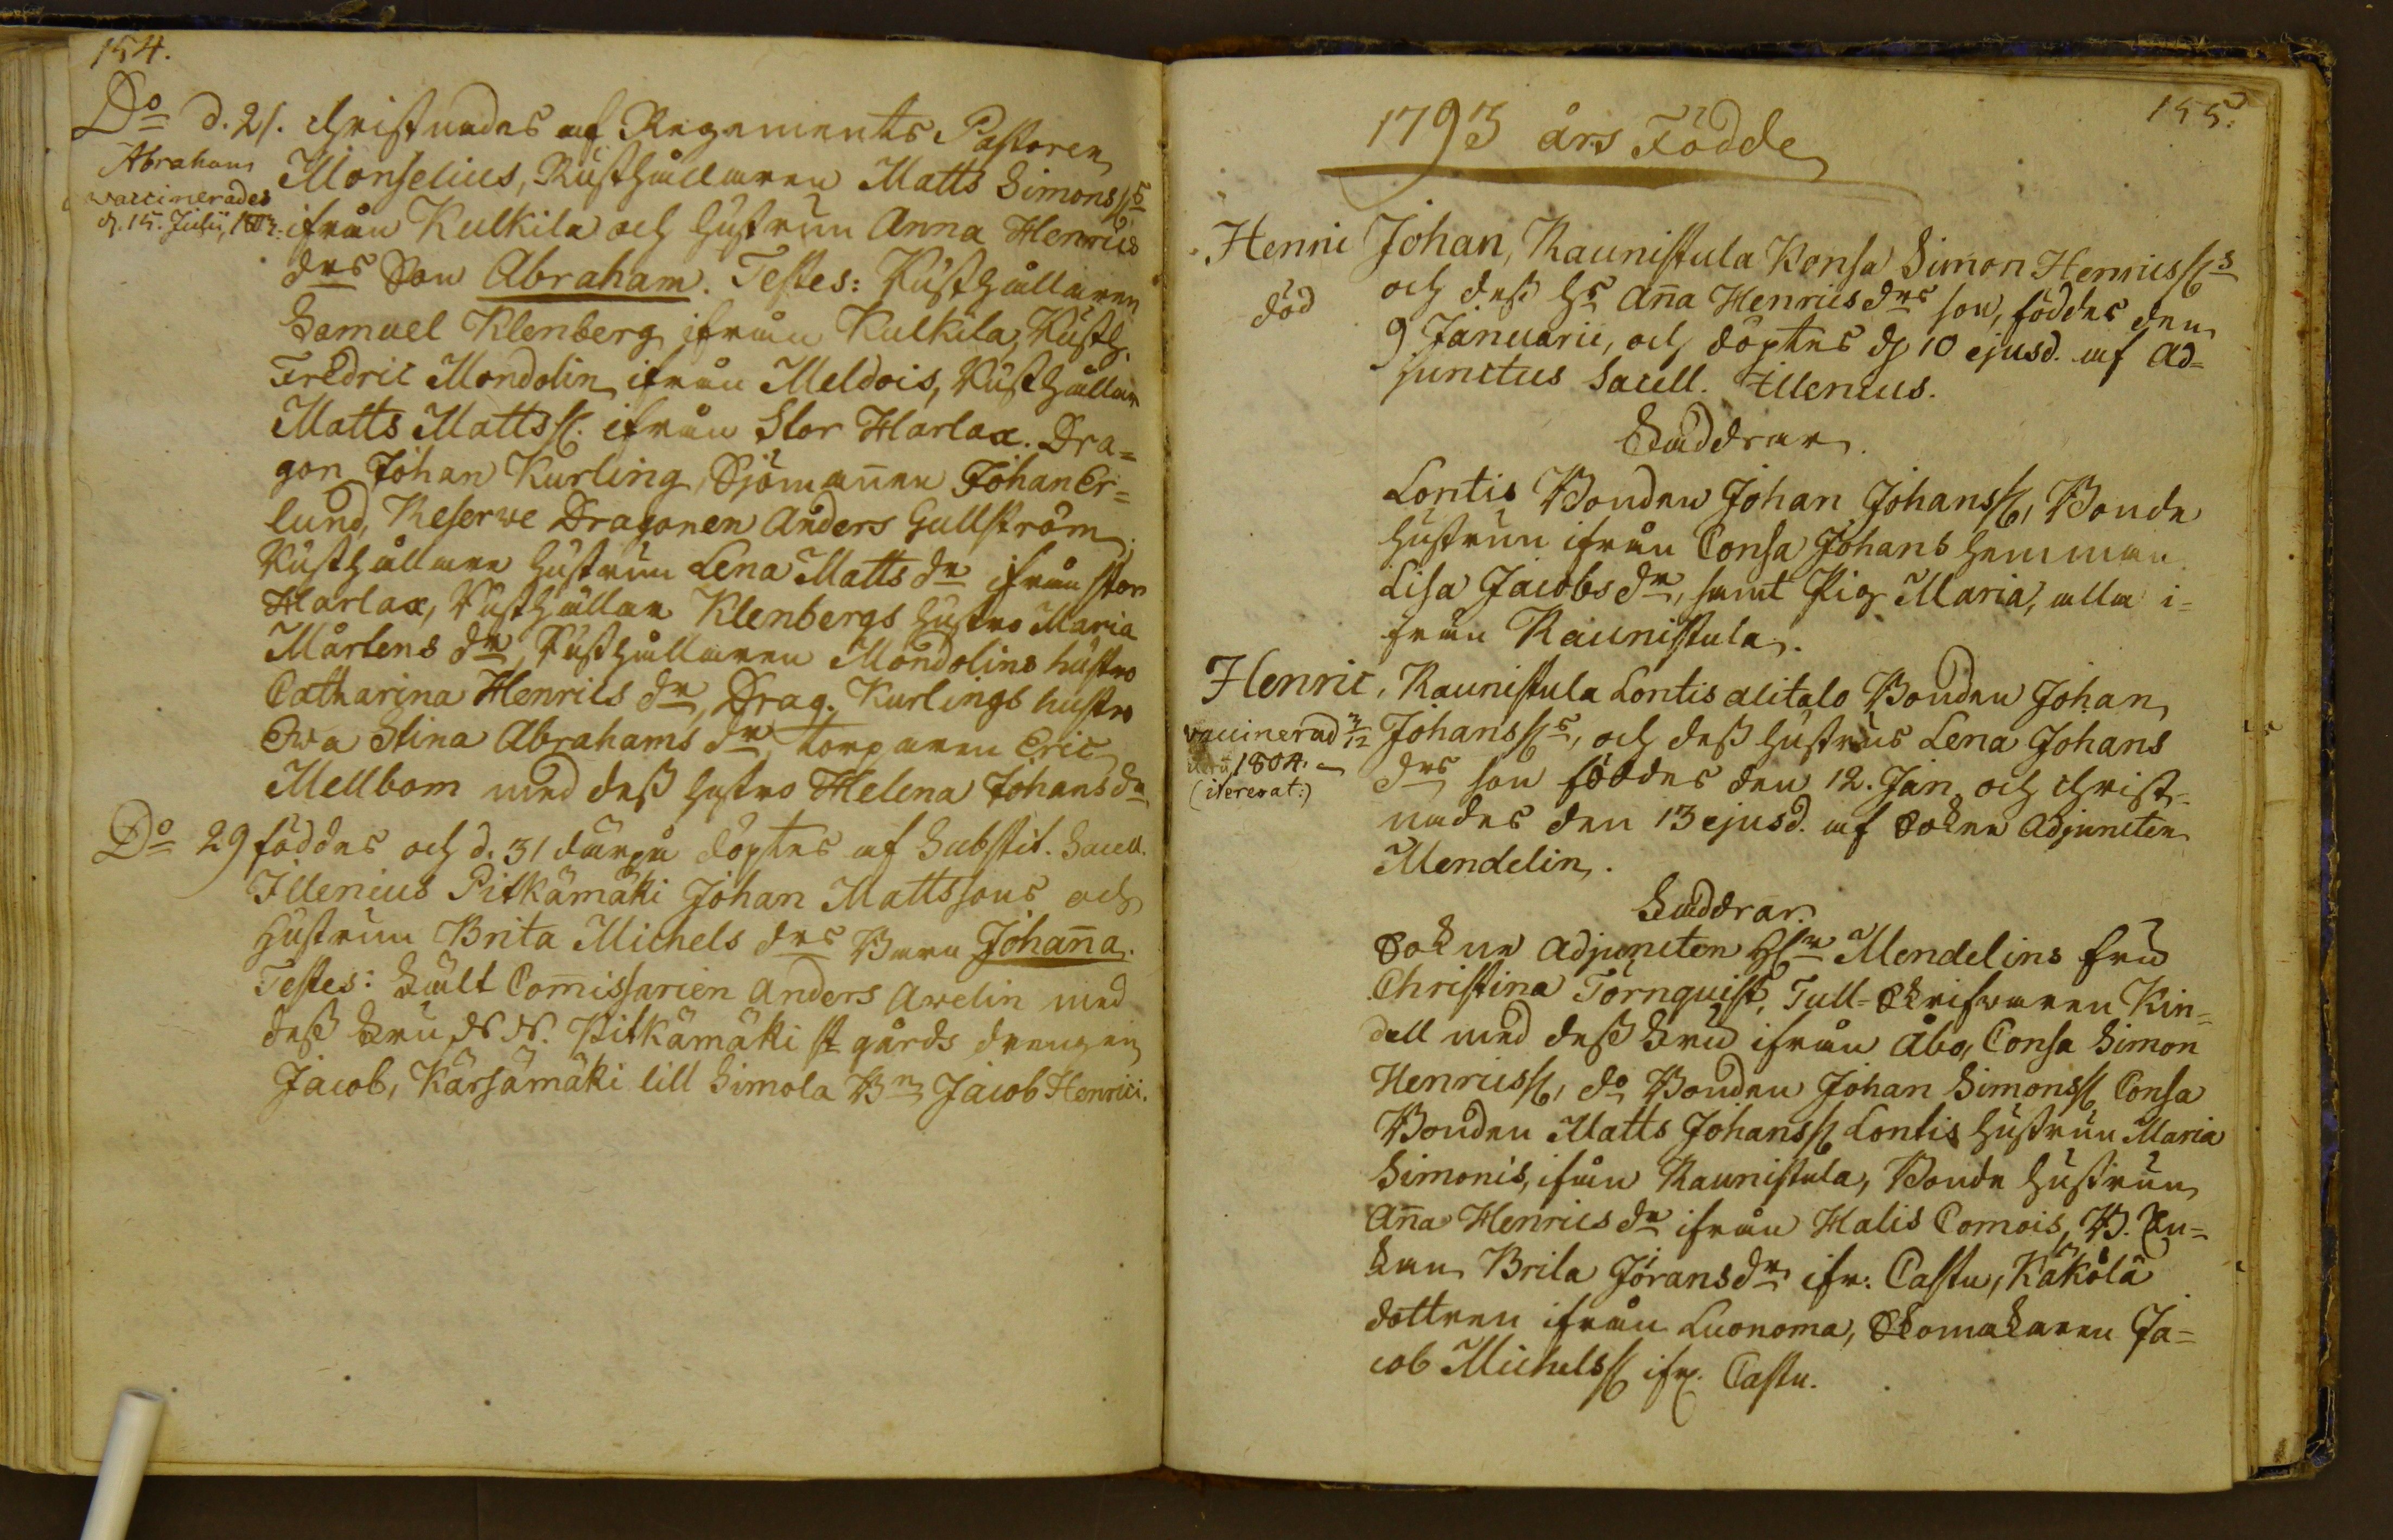 154.
Do d. 21. christnades af Regements Pastoren
Abraham
vaccinerades
d. 15. Julii, 1803.
Monselius, Rusthållaren Matts Simonss s
ifrån Kulkila och hustrun Anna Henrics
drs Son Abraham. Testes: Rusthållaren
Samuel Klenberg ifrån Kulkila, Rusth.
Fredric Mondolin ifrån Meldois, Rusthållar
Matts Mattss. ifrån Stor Harlax. Dra=
gon Johan Kurling, Sjömannen Johan Er=
lund, Reserve Dragonen Anders Gullström
Rusthållare hustrun Lena Matts dr ifrån stor
Harlax, Rusthållare Klenbergs hustro Maria
Mårtens dr, Rusthållaren Mondolins hustro
Catharina Henrics dr, Drag. Kurlings hustro
Ewa Stina Abrahams dr, torparen Eric
Mellbom med dess hustro Helena Johans dr
Do 29 föddes och d. 31 därpå döptes af Substit. Sacell.
Illenius Pitkämäki Johan Mattssons och
hustrun Brita Michels drs Barn Johanna.
Testes: Fält Comissarien Anders Avelin med
dess Fru N. N. Pitkämäki st gårds drengen
Jacob, Kärsämäki lill Simola Bn Jacob Henrici.
155.
1793 års Födde
Henric Johan, Raunistula Konsa Simon Henricss s
död
och dess hs Anna Henrics drs son, föddes den
9 Januarii, och döptes d. 10 ejusd. af Ad=
junctus Sacell. Illenius.
Faddrar.
Lontis Bonden Johan Johanss, Bonde
hustrun ifrån Consa Johans hemman
Lisa Jacobs dr, samt Pig. Maria, alla i=
från Raunistula.
Henric, Raunistula Lontis alitalo Bonden Johan
vaccinerad 3/12
1804.
(itererat:)
Johanss s, och dess hustrus Lena Johans
drs son föddes den 12. Jan. och christ=
nades den 13 ejusd. af Sokne Adjuncten
Mendelin.
Faddrar.
Sokne Adjuncten Hr Mendelins fru
Christina Törnquist, Tull-Skrifvaren Kin=
dell med dess Fru ifrån Åbo, Consa Simon
Henricss, do Bonden Johan Simonss Consa
Bonden Matts Johanss Lontis hustrun Maria
Simonis, ifrån Raunistula, Bonde hustrun
Anna Henrics dr ifrån Halis Comois, B. En=
kan Brita Jörans dr ifr. Castu, Käkölä
dottren ifrån Luonoma, Skomakaren Ja=
cob Michelss ifr. Castu.